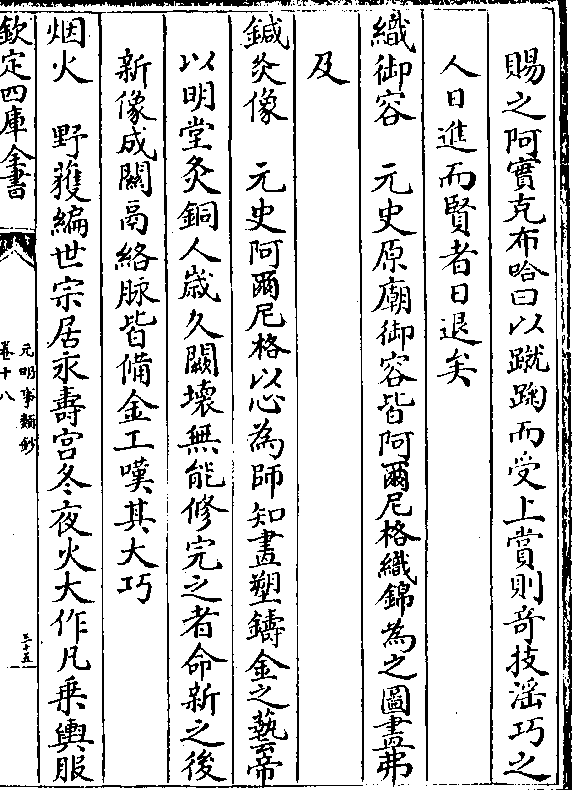 賜之阿寶克布哈曰以蹴踘而受上賞則奇技滛巧之
人日進而賢者日退矣
織御容　元史原廟御容皆阿爾尼格織錦為之圖畫弗
及
鍼灸像　元史阿爾尼格以心為師知畫塑鑄金之藝帝
以明堂灸銅人歲久闕壞無能修完之者命新之後
新像成關鬲絡脉皆備金工嘆其大巧
烟火　野獲編世宗居永壽宮冬夜火大作凡乗輿服
欽定四庫全書
元明事類鈔
卷十八
三十五